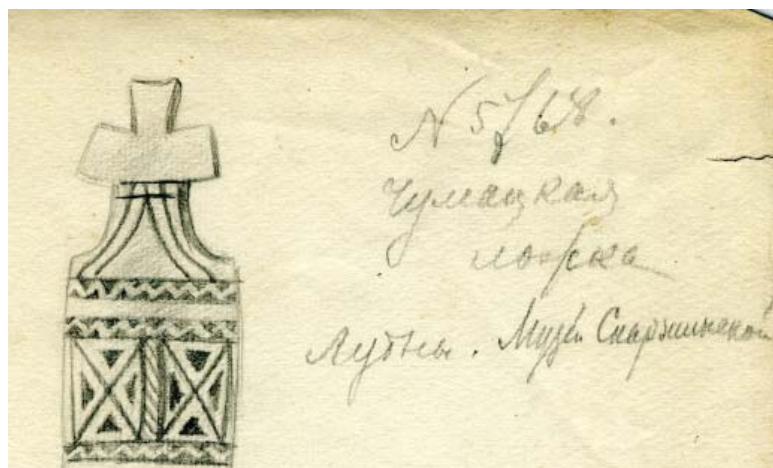 Чумацкая
ложка
Лубны. Музей Скаржинской